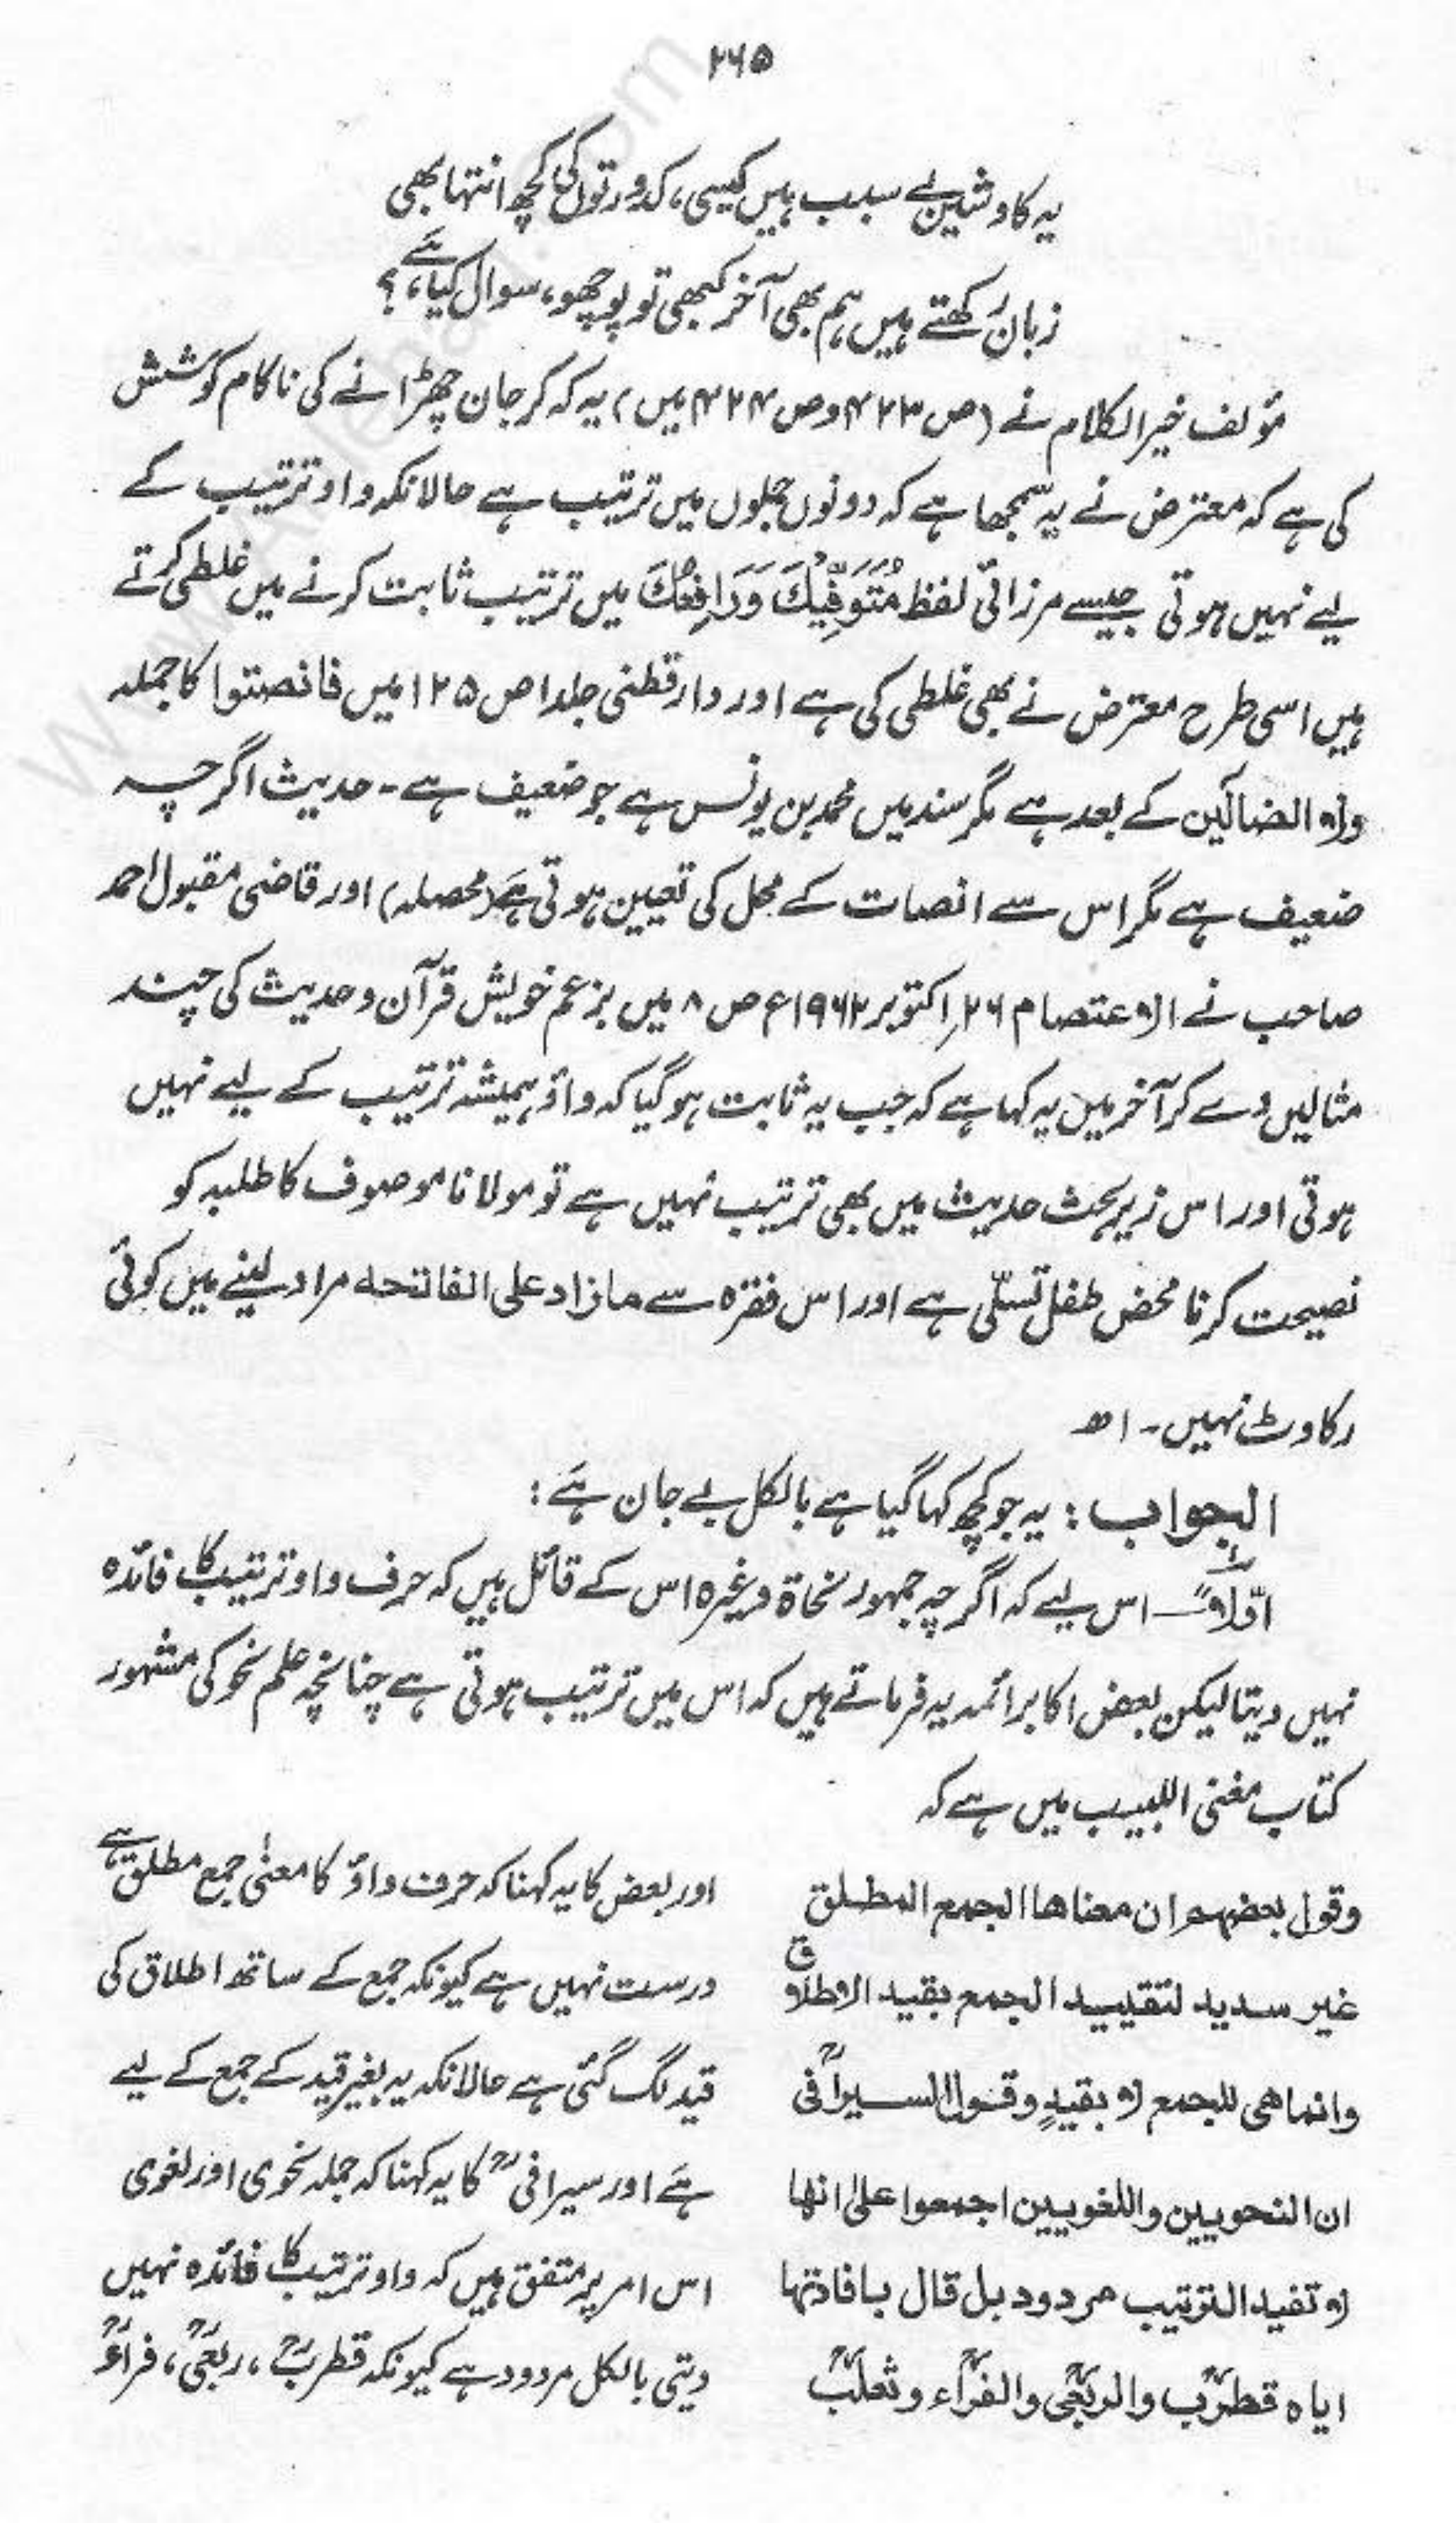 ۲۶۵
یہ کاوشیں بے سبب ہیں کیسی، کدورتوں کی کچھ انتہا بھی
زبان رکھتے ہیں ہم بھی آخر کبھی تو پوچھو، سوال کیا ہے؟
مؤلف خیر الکلام نے (ص ۴۲۳ و ص ۴۲۴ میں) یہ کہ کر جان چھڑانے کی ناکام کوشش
کی ہے کہ معترض نے یہ سمجھا ہے کہ دونوں جملوں میں ترتیب ہے حالانکہ واو ترتیب کے
لیے نہیں ہوتی جیسے مرزائی لفظ مُتَوَفِّيْكَ وَرَافِعُكَ میں ترتیب ثابت کرنے میں غلطی کرتے
ہیں اسی طرح معترض نے بھی غلطی کی ہے اور دارقطنی جلد ا ص ۱۲۵ میں فانصتوا کا جملہ
ولا الضالین کے بعد ہے مگر سند میں محمد بن یونس ہے جو ضعیف ہے۔ حدیث اگرچہ
ضعیف ہے مگر اس سے انصات کے محل کی تعیین ہوتی ہے (محصلہ) اور قاضی مقبول احمد
صاحب نے الاعتصام ۲۶ اکتوبر ۱۹۶۲ء ص ۸ میں بزعم خویش قرآن و حدیث کی چند
مثالیں دے کر آخر میں یہ کہا ہے کہ جب یہ ثابت ہو گیا کہ واؤ ہمیشہ ترتیب کے لیے نہیں
ہوتی اور اس زیر بحث حدیث میں بھی ترتیب نہیں ہے تو مولانا موصوف کا طلبہ کو
نصیحت کرنا محض طفل تسلّی ہے اور اس فقرہ سے مازاد علی الفاتحه مراد لینے میں کوئی
رکاوٹ نہیں۔ اھ
الجواب: یہ جو کچھ کہا گیا ہے بالکل بے جان ہے:
اوّلاً ـــ اس لیے کہ اگرچہ جمہور نحاۃ وغیرہ اس کے قائل ہیں کہ حرف واو ترتیب کا فائدہ
نہیں دیتا لیکن بعض اکابر ائمہ یہ فرماتے ہیں کہ اس میں ترتیب ہوتی ہے چنانچہ علم نحو کی مشہور
کتاب مغنی اللبیب میں ہے کہ
وقول بعضهم ان معناها الجمع المطلق
غير سديد لتقييد الجمع بقيد الاطلاق
وانما هى للجمع لا بقيدٍ وقول السيرافىؒ
ان النحويين واللغويين اجمعوا على انها
لا تفيد الترتيب مردود بل قال بافادتها
اياه قطربؒ والربعىؒ والفراءؒ وثعلبؒ
اور بعض کا یہ کہنا کہ حرف واؤ کا معنٰی جمع مطلق ہے
درست نہیں ہے کیونکہ جمع کے ساتھ اطلاق کی
قید لگ گئی ہے حالانکہ یہ بغیر قید کے جمع کے لیے
ہے اور سیرافیؒ کا یہ کہنا کہ جملہ نحوی اور لغوی
اس امر پر متفق ہیں کہ واو ترتیب کا فائدہ نہیں
دیتی بالکل مردود ہے کیونکہ قطربؒ، ربعیؒ، فراءؒ